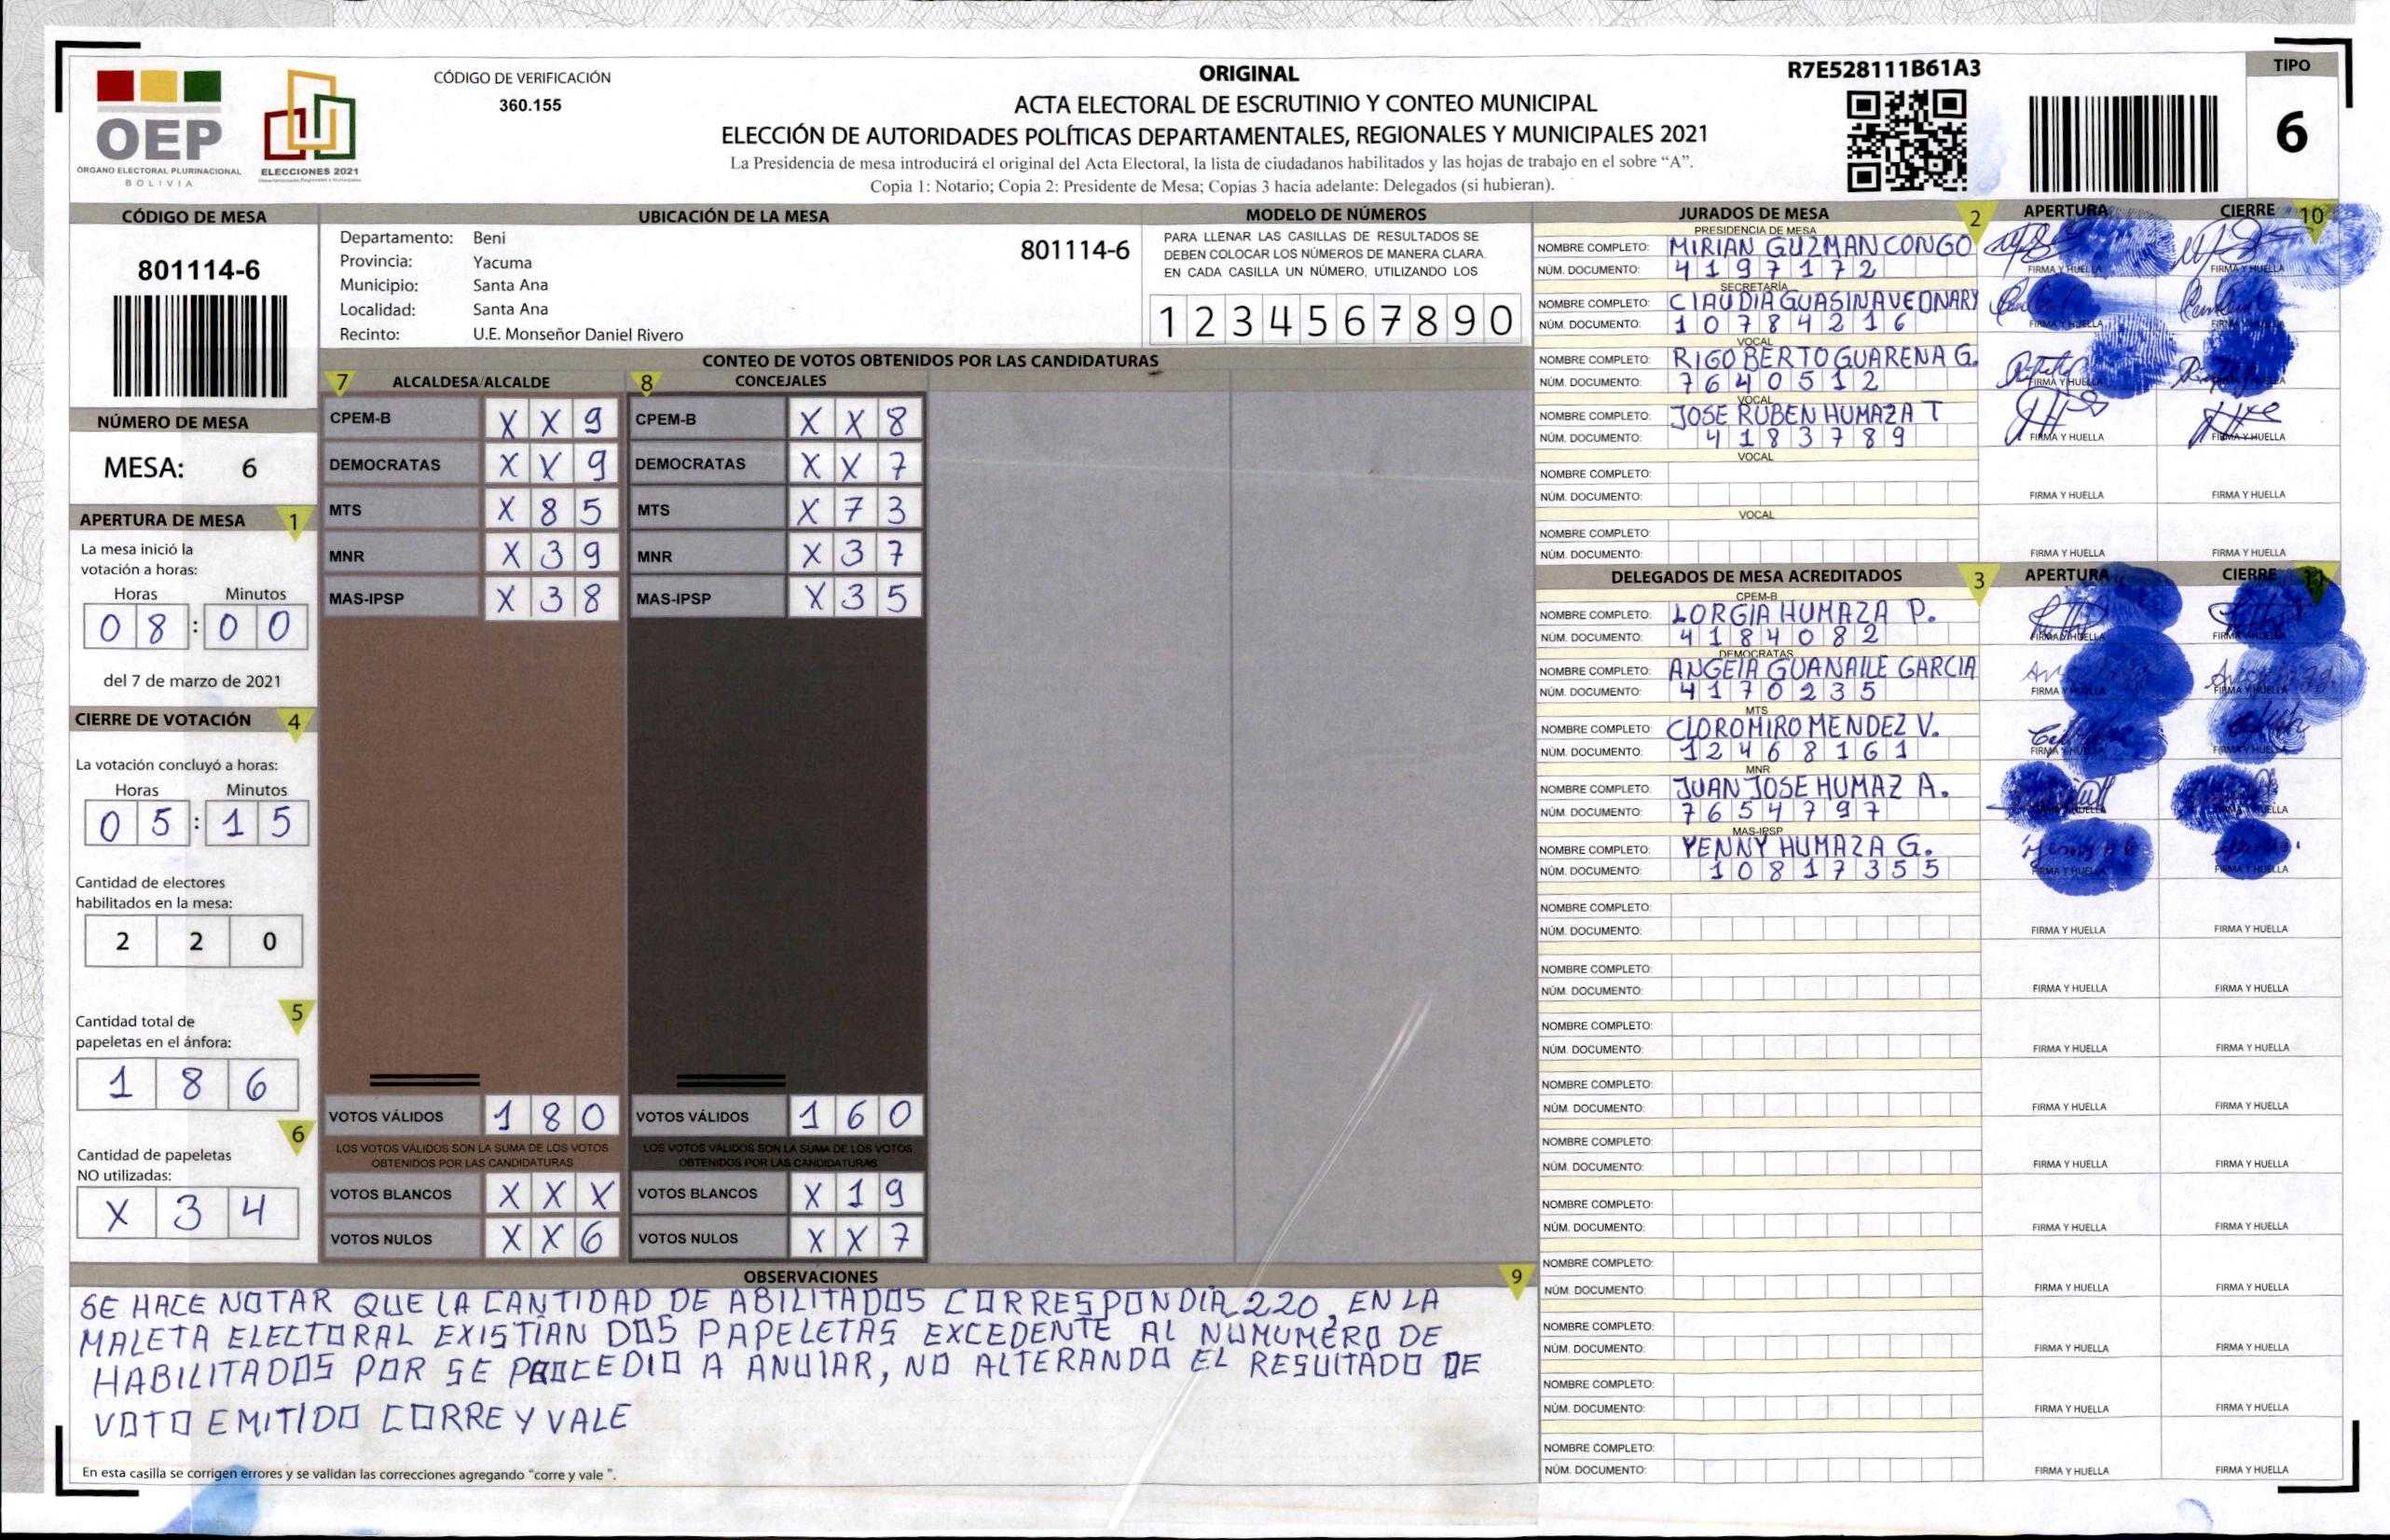 OEP
ÓRGANO ELECTORAL PLURINACIONAL
BOLIVIA
ELECCIONES 2021
CÓDIGO DE VERIFICACIÓN
360.155
ORIGINAL
ACTA ELECTORAL DE ESCRUTINIO Y CONTEO MUNICIPAL
ELECCIÓN DE AUTORIDADES POLÍTICAS DEPARTAMENTALES, REGIONALES Y MUNICIPALES 2021
La Presidencia de mesa introducirá el original del Acta Electoral, la lista de ciudadanos habilitados y las hojas de trabajo en el sobre “A”.
Copia 1: Notario; Copia 2: Presidente de Mesa; Copias 3 hacia adelante: Delegados (si hubieran).
R7E528111B61A3
TIPO
6
CÓDIGO DE MESA
801114-6
NÚMERO DE MESA
MESA: 6
APERTURA DE MESA 1
La mesa inició la
votación a horas:
Horas Minutos
0 8 : 0 0
del 7 de marzo de 2021
CIERRE DE VOTACIÓN 4
La votación concluyó a horas:
Horas Minutos
0 5 : 1 5
Cantidad de electores
habilitados en la mesa:
2 2 0
5
Cantidad total de
papeletas en el ánfora:
1 8 6
6
Cantidad de papeletas
NO utilizadas:
X 3 4
UBICACIÓN DE LA MESA
Departamento: Beni
Provincia: Yacuma
Municipio: Santa Ana
Localidad: Santa Ana
Recinto: U.E. Monseñor Daniel Rivero
801114-6
MODELO DE NÚMEROS
PARA LLENAR LAS CASILLAS DE RESULTADOS SE
DEBEN COLOCAR LOS NÚMEROS DE MANERA CLARA.
EN CADA CASILLA UN NÚMERO, UTILIZANDO LOS
1 2 3 4 5 6 7 8 9 0
CONTEO DE VOTOS OBTENIDOS POR LAS CANDIDATURAS
7 ALCALDESA/ALCALDE
CPEM-B X X 9
DEMOCRATAS X X 9
MTS X 8 5
MNR X 3 9
MAS-IPSP X 3 8
VOTOS VÁLIDOS 1 8 0
LOS VOTOS VÁLIDOS SON LA SUMA DE LOS VOTOS
OBTENIDOS POR LAS CANDIDATURAS
VOTOS BLANCOS X X X
VOTOS NULOS X X 6
8 CONCEJALES
CPEM-B X X 8
DEMOCRATAS X X 7
MTS X 7 3
MNR X 3 7
MAS-IPSP X 3 5
VOTOS VÁLIDOS 1 6 0
LOS VOTOS VÁLIDOS SON LA SUMA DE LOS VOTOS
OBTENIDOS POR LAS CANDIDATURAS
VOTOS BLANCOS X 1 9
VOTOS NULOS X X 7
OBSERVACIONES 9
SE HACE NOTAR QUE LA CANTIDAD DE ABILITADOS CORRESPONDIA 220, EN LA
MALETA ELECTORAL EXISTIAN DOS PAPELETAS EXCEDENTE AL NUMUMERO DE
HABILITADOS POR SE PROCEDIO A ANULAR, NO ALTERANDO EL RESULTADO DE
VOTO EMITIDO CORRE Y VALE
En esta casilla se corrigen errores y se validan las correcciones agregando “corre y vale ”.
JURADOS DE MESA 2 APERTURA CIERRE 10
PRESIDENCIA DE MESA
NOMBRE COMPLETO: MIRIAN GUZMAN CONGO
NÚM. DOCUMENTO: 4197172 FIRMA Y HUELLA FIRMA Y HUELLA
SECRETARÍA
NOMBRE COMPLETO: CLAUDIA GUASINAVE ONARY
NÚM. DOCUMENTO: 10784216 FIRMA Y HUELLA FIRMA Y HUELLA
VOCAL
NOMBRE COMPLETO: RIGOBERTO GUARENA G.
NÚM. DOCUMENTO: 7640512 FIRMA Y HUELLA FIRMA Y HUELLA
VOCAL
NOMBRE COMPLETO: JOSE RUBEN HUMAZA T
NÚM. DOCUMENTO: 4183789 FIRMA Y HUELLA FIRMA Y HUELLA
VOCAL
NOMBRE COMPLETO:
NÚM. DOCUMENTO: FIRMA Y HUELLA FIRMA Y HUELLA
VOCAL
NOMBRE COMPLETO:
NÚM. DOCUMENTO: FIRMA Y HUELLA FIRMA Y HUELLA
DELEGADOS DE MESA ACREDITADOS 3 APERTURA CIERRE 11
CPEM-B
NOMBRE COMPLETO: LORGIA HUMAZA P.
NÚM. DOCUMENTO: 4184082 FIRMA Y HUELLA FIRMA Y HUELLA
DEMOCRATAS
NOMBRE COMPLETO: ANGELA GUANAILE GARCIA
NÚM. DOCUMENTO: 4170235 FIRMA Y HUELLA FIRMA Y HUELLA
MTS
NOMBRE COMPLETO: CLOROMIRO MENDEZ V.
NÚM. DOCUMENTO: 12468161 FIRMA Y HUELLA FIRMA Y HUELLA
MNR
NOMBRE COMPLETO: JUAN JOSE HUMAZ A.
NÚM. DOCUMENTO: 7654797 FIRMA Y HUELLA FIRMA Y HUELLA
MAS-IPSP
NOMBRE COMPLETO: YENNY HUMAZA G.
NÚM. DOCUMENTO: 10817355 FIRMA Y HUELLA FIRMA Y HUELLA
NOMBRE COMPLETO:
NÚM. DOCUMENTO: FIRMA Y HUELLA FIRMA Y HUELLA
NOMBRE COMPLETO:
NÚM. DOCUMENTO: FIRMA Y HUELLA FIRMA Y HUELLA
NOMBRE COMPLETO:
NÚM. DOCUMENTO: FIRMA Y HUELLA FIRMA Y HUELLA
NOMBRE COMPLETO:
NÚM. DOCUMENTO: FIRMA Y HUELLA FIRMA Y HUELLA
NOMBRE COMPLETO:
NÚM. DOCUMENTO: FIRMA Y HUELLA FIRMA Y HUELLA
NOMBRE COMPLETO:
NÚM. DOCUMENTO: FIRMA Y HUELLA FIRMA Y HUELLA
NOMBRE COMPLETO:
NÚM. DOCUMENTO: FIRMA Y HUELLA FIRMA Y HUELLA
NOMBRE COMPLETO:
NÚM. DOCUMENTO: FIRMA Y HUELLA FIRMA Y HUELLA
NOMBRE COMPLETO:
NÚM. DOCUMENTO: FIRMA Y HUELLA FIRMA Y HUELLA
NOMBRE COMPLETO:
NÚM. DOCUMENTO: FIRMA Y HUELLA FIRMA Y HUELLA